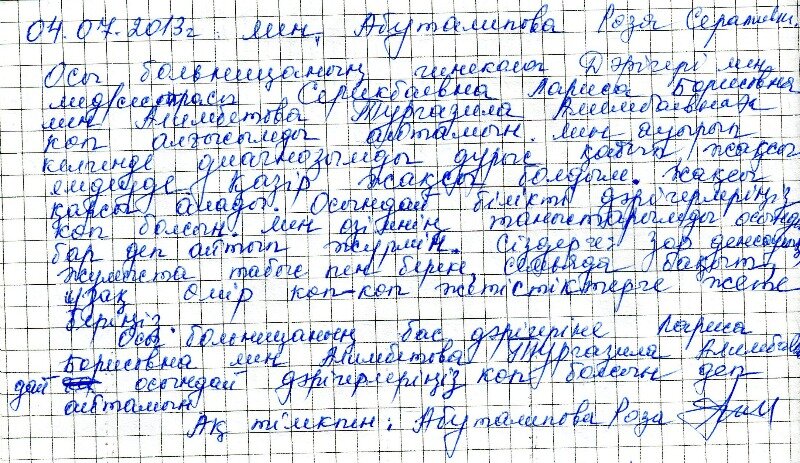 04.07.2013г. мен, Абуталипова Роза Сератовна.
Осы больницаның гинеколог Дәрігері мен
медсестрасы Серикбаевна Лариса Борисовна
мен Алимбетова Тургазила Алимбаевнаға
коп алғысымды айтамын. мен ауырып
келгенде диагназымды дурыс қойып жақсы
емдеуде қазір жақсы болдым. жақсы
қарсы алады. Осындай білікті дәрігерлеріңіз
коп болсын. мен өзімнің таныстарымды осында
бар деп айтып журмін. Сіздерге зор денсаулық
жумыста табыс пен береке, семьяда бақыт,
узақ өмір коп-коп жетістіктерге жете
беріңіз.
Осы больницаның бас дәрігеріне Лариса
Борисовна мен Алимбетова Тургазила Алимбаевна
дай осындай дәрігерлеріңіз коп болсын деп
айтамын.
Ақ тілекпен: Абуталипова Роза